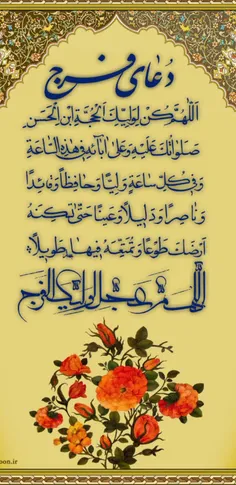 دُعای فرج
اَللّهُمَّ كُنْ لِوَلِيِّكَ الْحُجَّةِ ابْنِ الْحَسَنِ
صَلَواتُكَ عَلَيْهِ وَعَلى ابآئِهِ في هذِهِ السّاعَةِ
وَفي كُلِّ ساعَةٍ وَلِيّاً وَحافِظاً وَقائِداً
وَناصِراً وَدَليلاً وَعَيْناً حَتّى تُسْكِنَهُ
اَرْضَكَ طَوْعاً وَتُمَتِّعَهُ فيها طَويلاً
اللّهُمَّ عَجِّل لِوَلِيِّكَ الْفَرَج